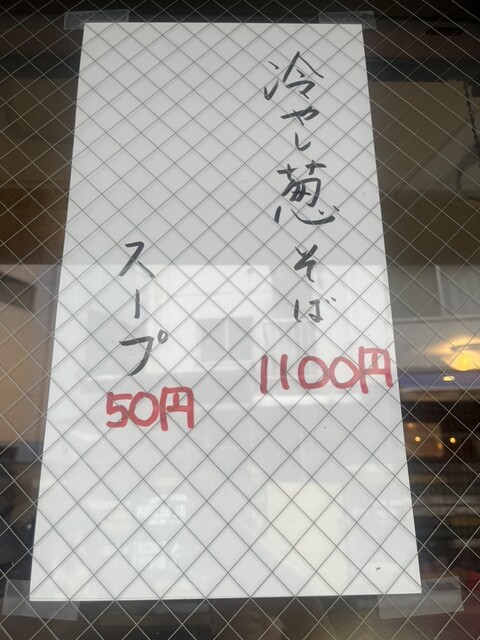 冷やし葱そば
1100円
スープ
50円